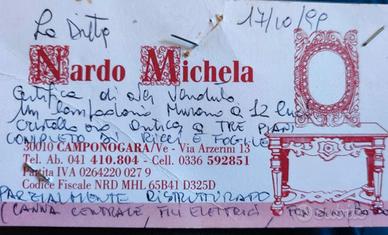 17/10/99
La Ditta
Nardo Michela
Certifica di aver venduto
un lampadario Murano a 12 luci
cristallo oro antico a TRE PIANI
COMPLETO DI RICCI E FOGLIE
30010 CAMPONOGARA/Ve - Via Arzerini 13
Tel. Ab. 041 410.804 - Cell. 0336 592851
Partita IVA 0264220 027 9
Codice Fiscale NRD MHL 65B41 D325D
PARZIALMENTE RISTRUTTURATO
(CANNA CENTRALE, FILI ELETTRICI,